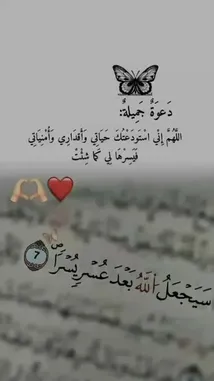 دَعوَةٌ جَمِيلةٌ:
اللَّهُمَّ إِنِّي اسْتَودَعْتُكَ حَيَاتِي وَأَقدَارِي وَأُمْنِيَاتِي
فَيَسِرْهَا لِي كَمَا شِئْتْ
سَيَجْعَلُ اللَّهُ بَعْدَ عُسْرٍ يُسْرًا 7